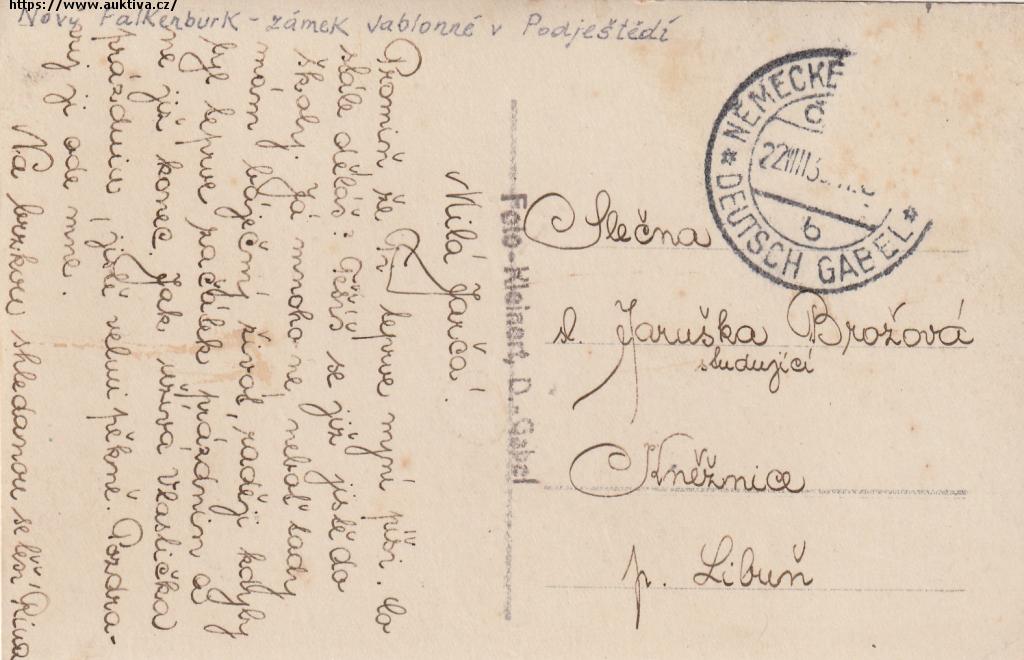 https://www.auktiva.cz/
Nový Falkenburk - zámek Jablonné v Podještědí
Milá Jarča!
Promiň že Ti teprve nyní píši. Co
stále děláš? Těšíš se již jistě do
školy. Já mnoho ne, neboť tady
mám báječný život, raději kdyby
byl teprve začátek prázdnin a
ne již konec. Jak užívá Vlastička
prázdnin, jistě velmi pěkně. Pozdra-
vuj ji ode mne.
Na brzkou shledanou se těší Rina
Foto-Kleinert, D.-Gabel
NĚMECKÉ
DEUTSCH GABEL
22 VIII 3
b
Slečna
sl. Jaruška Brožová
studující
Kněžnice
p. Libuň